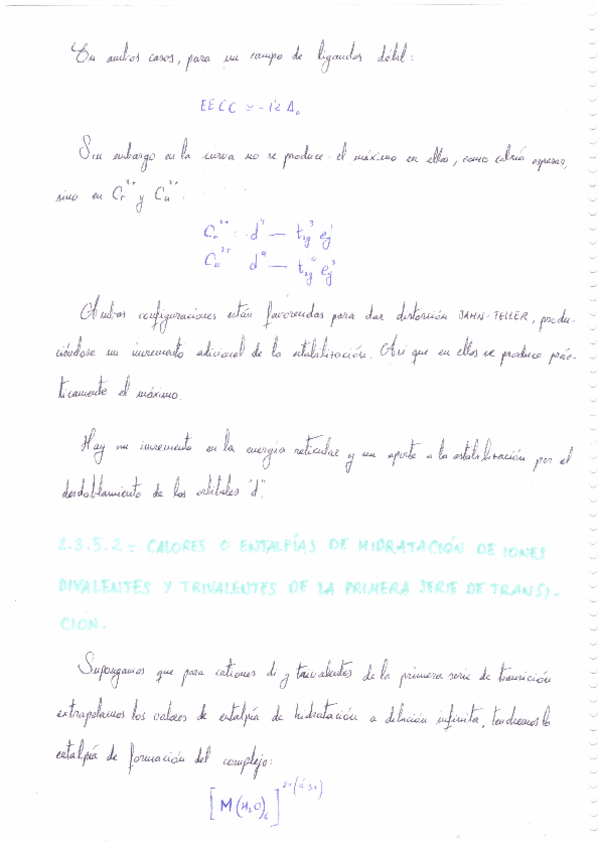 En ambos casos, para un campo de ligandos débil:
EECC ≃ -1'2 Δ₀
Sin embargo en la curva no se produce el máximo en ellos, como cabría esperar,
sino en Cr²⁺ y Cu²⁺:
Cr²⁺: d⁴ — t₂g³ eg¹
Cu²⁺: d⁹ — t₂g⁶ eg³
Ambas configuraciones están favorecidas para dar distorsión JAHN-TELLER, produ-
ciéndose un incremento adicional de la estabilización. Así que en ellos se produce prác-
ticamente el máximo.
Hay un incremento en la energía reticular y un aporte a la estabilización por el
desdoblamiento de los orbitales "d".
2.3.5.2.- CALORES O ENTALPÍAS DE HIDRATACIÓN DE IONES
DIVALENTES Y TRIVALENTES DE LA PRIMERA SERIE DE TRANSI-
CIÓN.
Supongamos que para cationes di y trivalentes de la primera serie de transición
extrapolamos los valores de entalpía de hidratación a dilución infinita, tendremos la
entalpía de formación del complejo:
[M(H₂O)₆]²⁺⁽ó ³⁺⁾